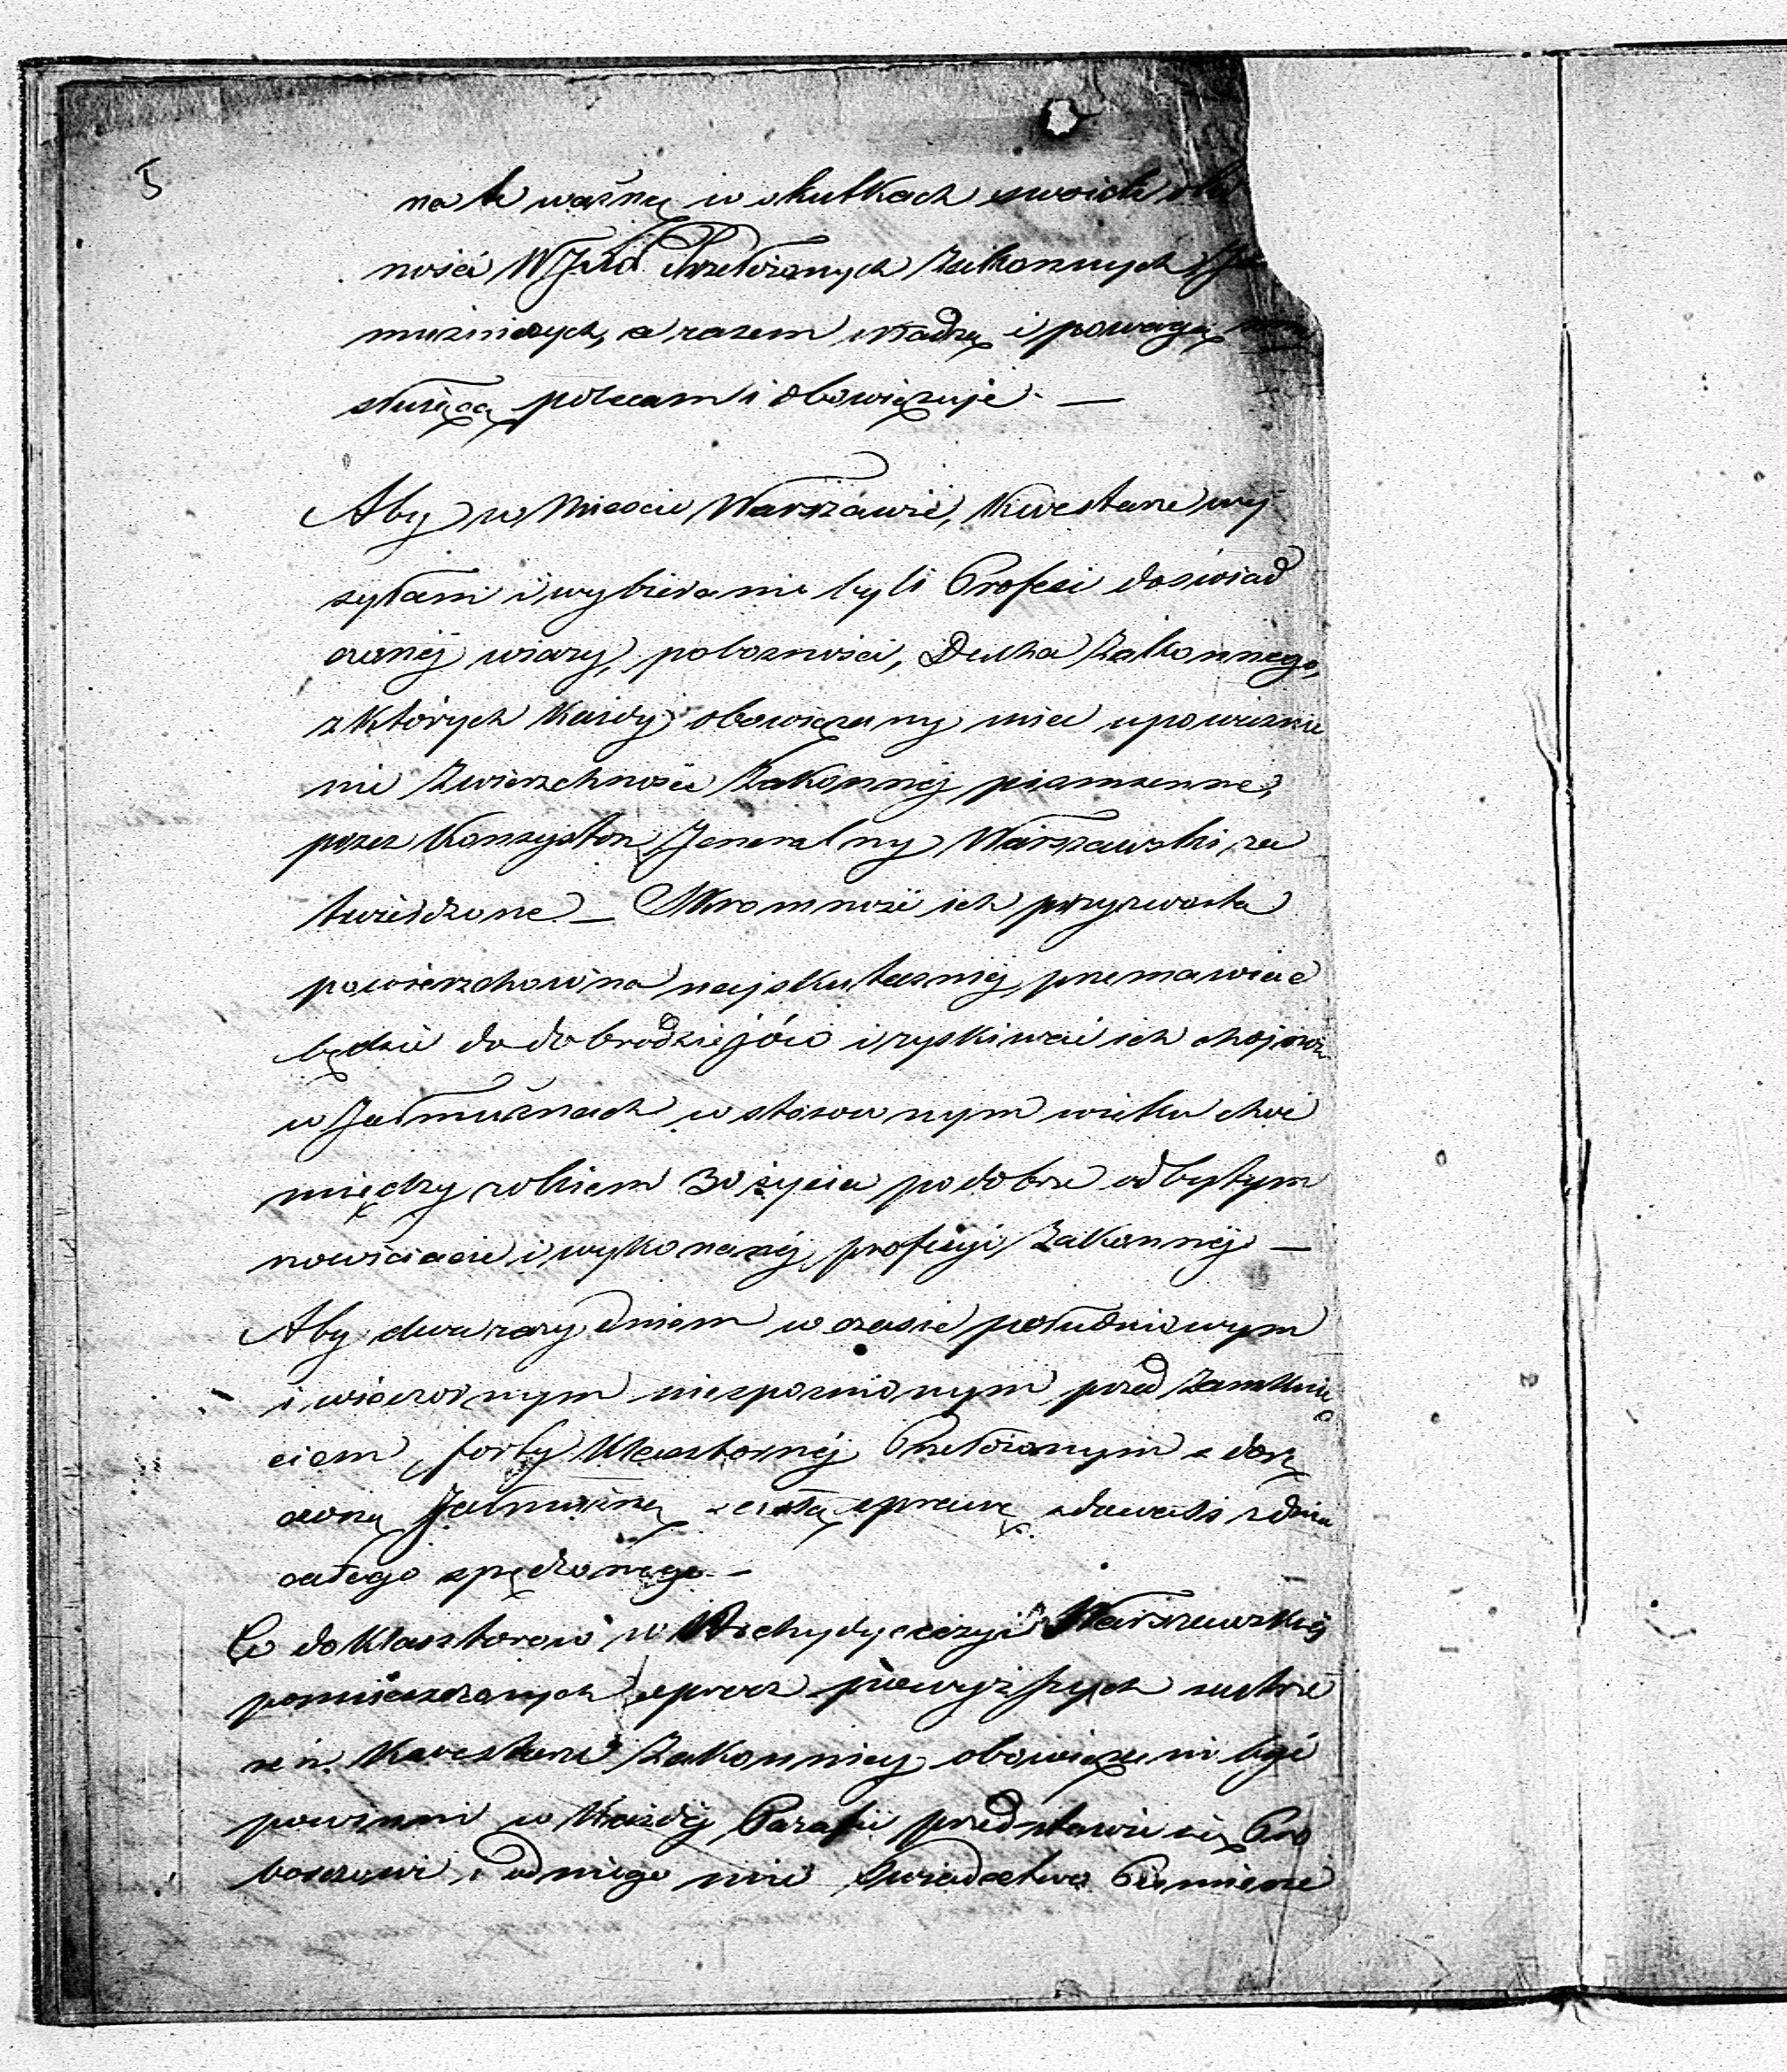 5
na tę ważną w skutkach swoich
ności WJXX. Przełożonych Zakonnych
mużniczych, a razem władzą i powagą
służącą polecam i obowięzuję. —
Aby w Mieście Warszawie, Kwestarze wy
syłani i wybierani byli Profesi doświad
czonéj wiary, pobożności, Ducha Zakonnego,
z których każdy obowięzany mieć upoważnie
nie Zwierzchności Zakonnéj piśmienne,
przez Konsystorz Jeneralny Warszawski za
twierdzone — Skromność ich przyzwoita
powierzchowna najskuteczniéj przemawiać
będzie do dobrodziejów i zyskiwać ich hojność
w Jałmużnach w stosownym wieku choć
między rokiem 30 życia po dobrze odbytym
nowiciacie i wykonanéj profesyi Zakonnéj —
Aby dwa razy dniem w czasie południowym
i wieczornym niespóźnionym przed Zamknię
ciem forty Klasztornéj Przełożonym z dorę
czoną Jałmużną ścisłą sprawę zdawali z dnia
całego spędzonego —
Co do Klasztorów w Archydyecezyi Warszawskiéj
pomieszczonych oprócz powyższych zastrze
żeń. Kwestarze Zakonnicy obowięzani być
powinni w każdéj Parafii przedstawić się Pro
boszczowi i od niego mieć Swiadectwo Piśmienne